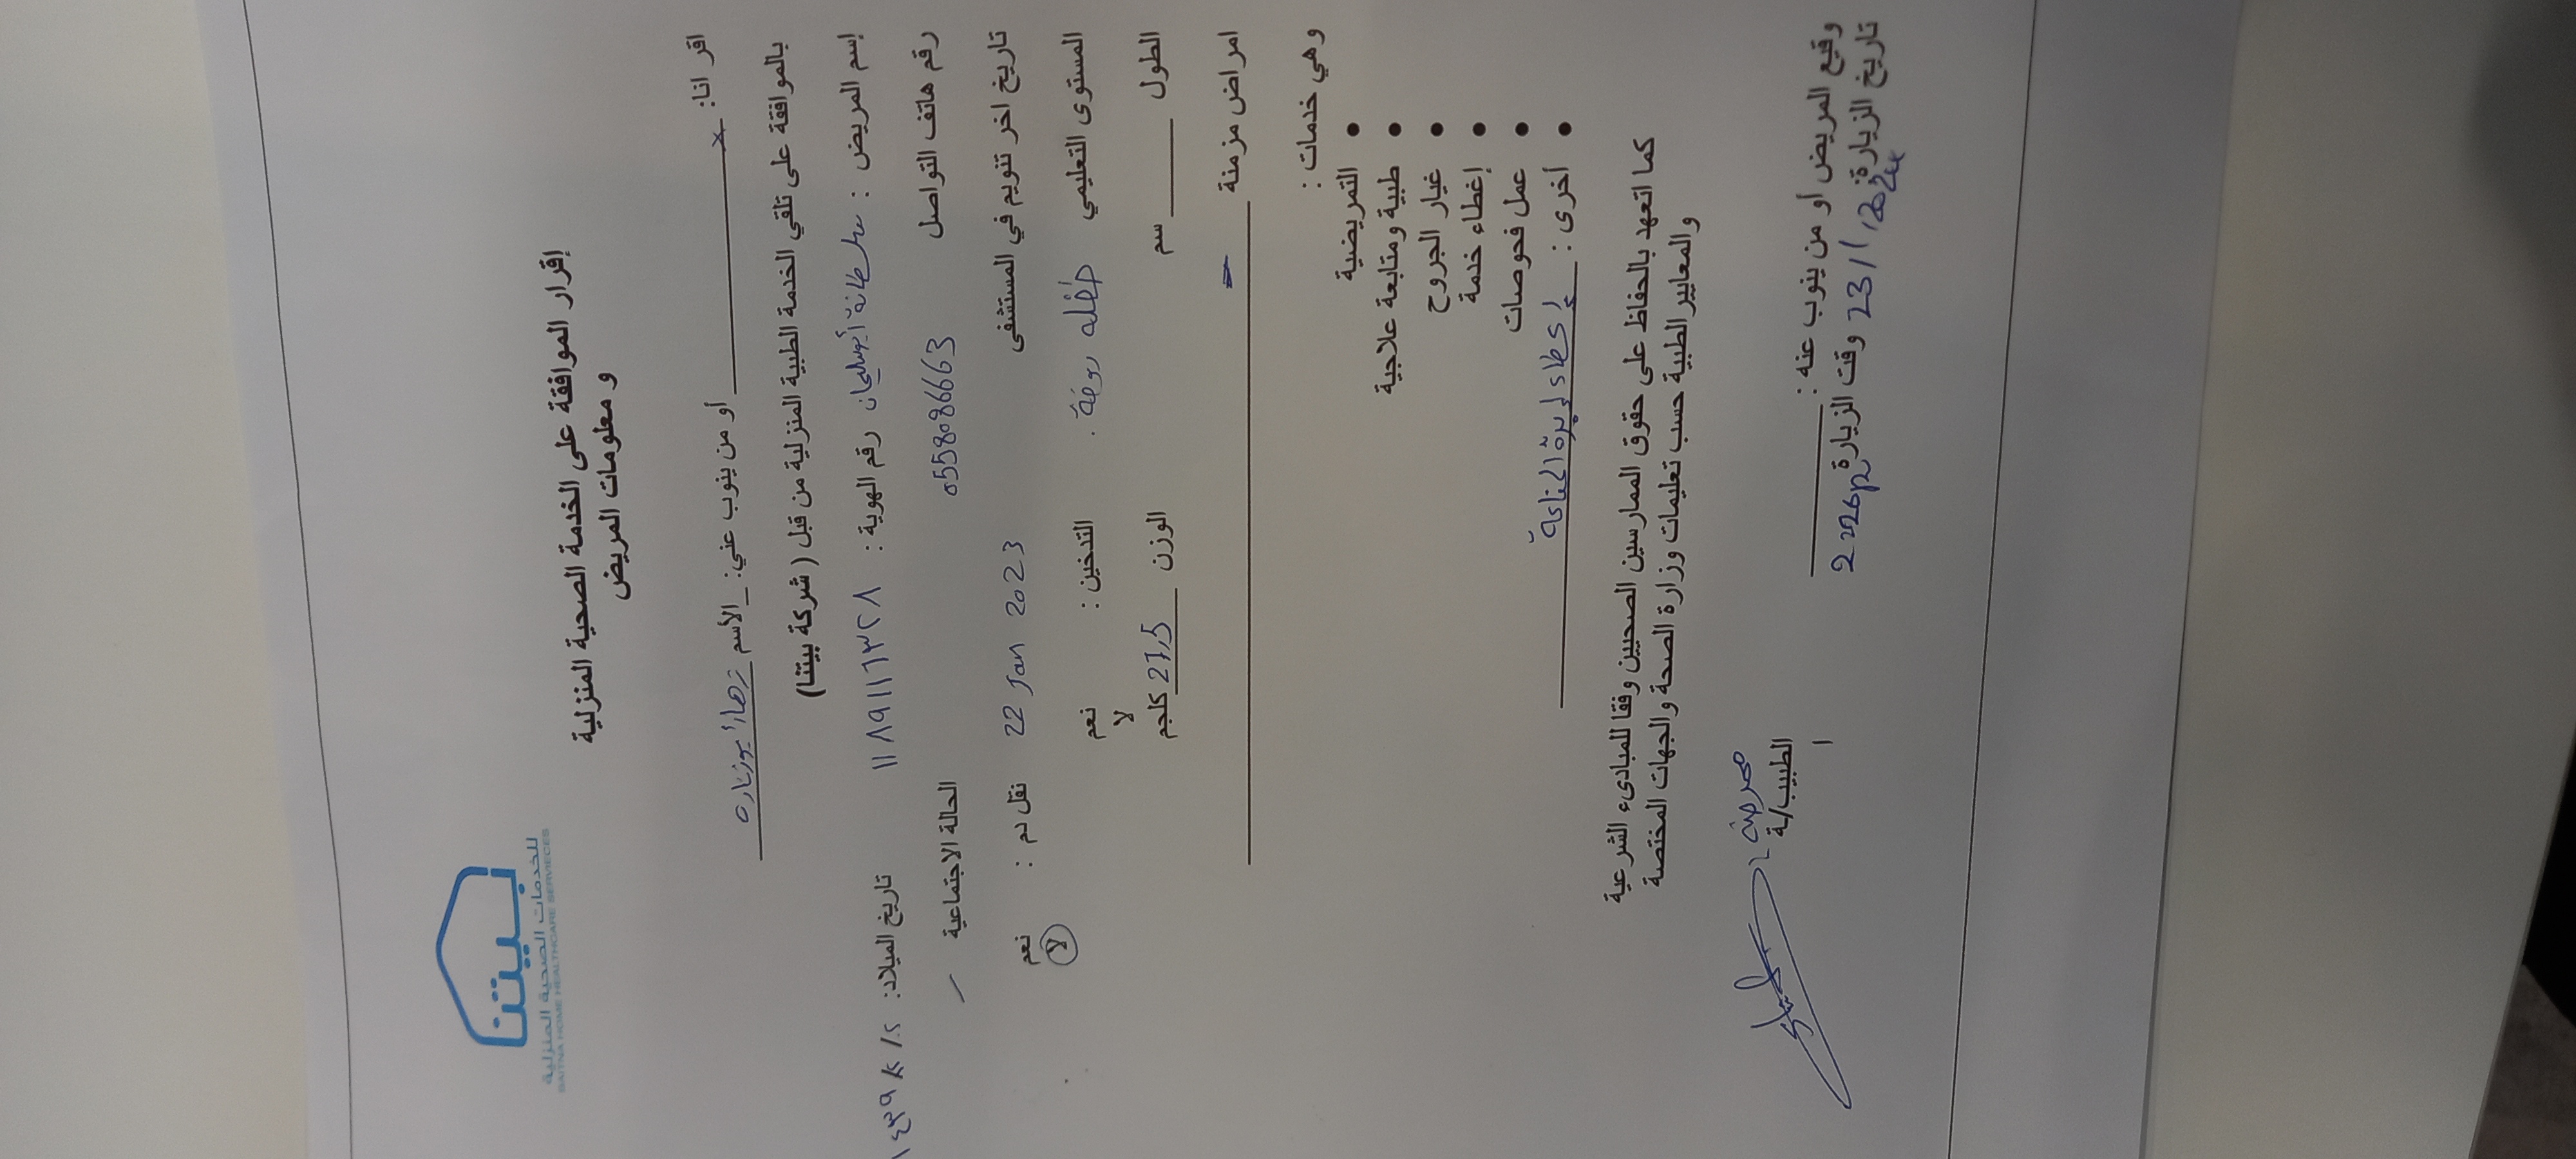 بيتنا
للخدمات الصحية المنزلية
BAITNA HOME HEALTHCARE SERVIECES
إقرار الموافقة على الخدمة الصحية المنزلية
و معلومات المريض
اقر انا: x أو من ينوب عني: الأسم
بالموافقة على تلقي الخدمة الطبية المنزلية من قبل (شركة بيتنا)
إسم المريض : رقم الهوية : ١١٨٩١١٦٣٢٨ تاريخ الميلاد:
رقم هاتف التواصل 0558086663 الحالة الاجتماعية
تاريخ اخر تنويم في المستشفى 22 Jan 2023 نقل دم : نعم
لا
المستوى التعليمي طفله روضة . التدخين : نعم
لا
الطول سم الوزن 27,5 كلجم
امراض مزمنة
وهي خدمات :
• التمريضية
• طبية ومتابعة علاجية
• غيار الجروح
• إغطاء خدمة
• عمل فحوصات
• أخرى : إعطاء إبرة المناعة
كما اتعهد بالحفاظ على حقوق الممارسين الصحيين وفقا للمبادىء الشرعية
والمعايير الطبية حسب تعليمات وزارة الصحة والجهات المختصة
الطبيب/ـة
وقيع المريض أو من ينوب عنه :
تاريخ الزيارة وقت الزيارة